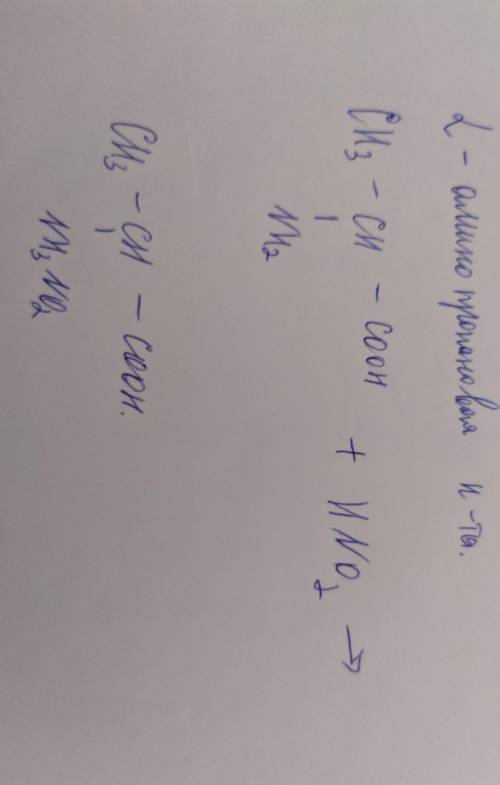 α - аминопропановая к-та.
CH₃ - CH - COOH + HNO₂ →
NH₂
CH₃ - CH - COOH.
NH₃NO₂